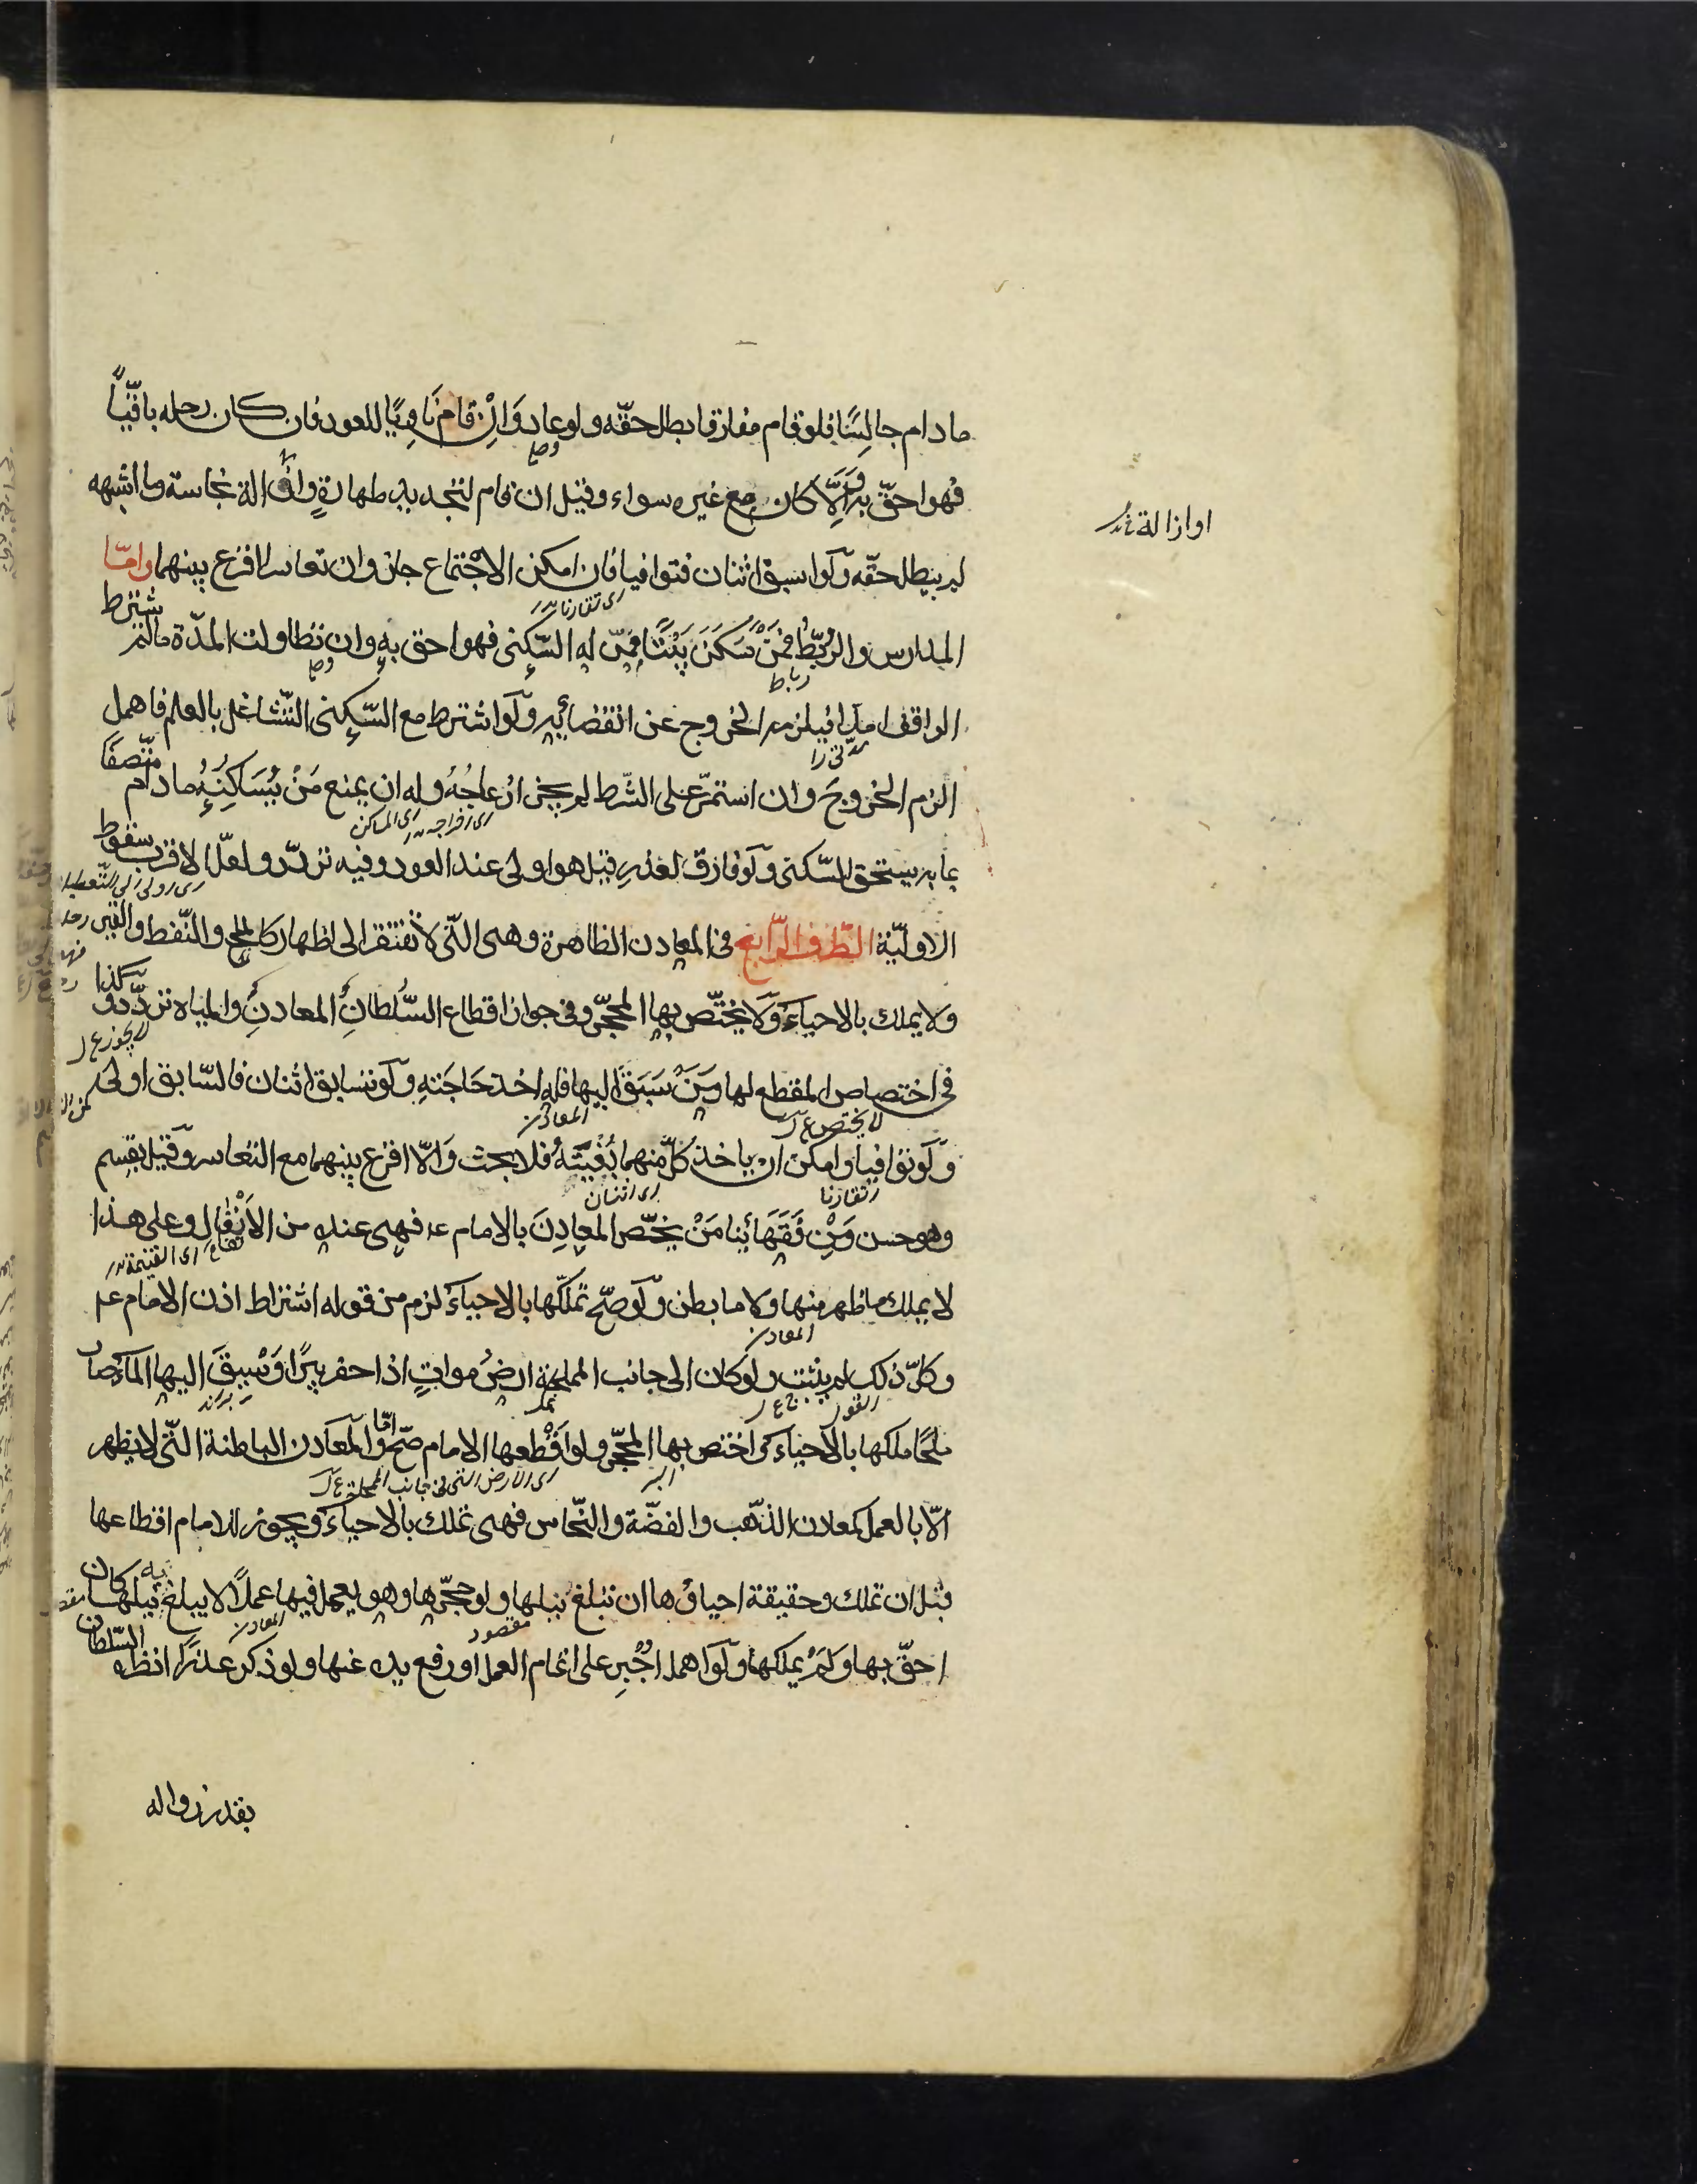 ما دام جالسًا فلو قام مفارقا بطل حقّه ولو عاد وَاِنْ قام نَاوِيًا للعود فان كان رحله باقيًا
فهو احقّ به وَاِلَّا كان مع غيره سواء وقيل ان قام لتجديد طهارةٍ او ازالة نجاسة وما اشبهه
او ازالة
لم يبطل حقّه وَلَو استبق اثنان فتوافيا فان امكن الاجتماع جاز وان تعاسرا اقرع بينهما وامّا
اى تقارنا
المدارس والرُّبُطُ فَمَنْ سَكَنَ بَيْتًا مِمّن له السّكنى فهو احق به وان تطاولت المدّة مالم يشترط
رباط
الواقف امدا فيلزمه الخروج عند انقضائه وَلَو اشترط مع السّكنى التّشاغل بالعلم فاهمل
الزم الخروجَ وان استمرّ على الشّرط لم يجز ازعاجُهُ وله ان يمنع مَنْ يُسَاكِنُهُ ما دام متّصفًا
اى اخراجه اى الساكن
بما به يستحق السّكنى وَلَو فارق لعذرٍ قيل هو اولى عند العود وفيه تردّد ولعلّ الاقرب سقوط
الاولويّة الطّرف الرّابع فى المعادن الظاهرة وهى التّى لا تفتقر الى اظهار كالملح والنّفط والقير
ولا يملك بالاحياء وَلَا يختّص بها المحجّر وفى جواز اقطاع السُّلطانِ المعادنَ والمياه تردّد وكذا
لا يجوز ع ل
فى اختصاص المقطع لها وَمَنْ سَبَقَ اليها فله اخذ حَاجَتِهِ وَلَو تسابق اثنان فالسّابق اولى
لا يختص ع ل المعادن
وَلَو توافيا وامكن ان ياخذ كلّ منهما بُغْيَتَهُ فلا بحث وَاِلّا اقرع بينهما مع التّعاسر وَقيل يقسم
تقارنا اى اثنان
وهو حسن وَمِنْ فُقَهَائِنا مَنْ يخصّ المعادِنَ بالامام ع فهى عنده من الاَنْفَالِ وعلى هذا
لا يملك ما ظهر منها ولا ما بطن وَلَو صحّ تملّكها بالاحياء لزم من قوله اشتراط اذن الامام ع
المعادن
وكلّ ذلك لم يثبت ولو كان الى جانب المملحة ارضُ مواتٍ اذا حفر بيرًا وَسِيقَ اليها الماء صار
ملحًا ملكها بالاحياء واختص بها المحجّر ولو اقْطعها الامام صحّ وامّا المعادن الباطنة التّى لا يظهر
اى الارض التى فى جانب المملحة ع ل
الّا بالعمل كمعادن الذّهب والفضّة والنّحاس فهى تملك بالاحياء ويجوز للامام اقطاعها
قبل ان تملك وحقيقة احياؤها ان تبلغ نيلها ولو حجّرها وهو يعمل فيها عملًا لا يبلغ به نيلها كان
مقصود المعادن
احقّ بها وَلَمْ يملكها وَلَو اهمل اُجْبِر على اتمام العمل او رفع يده عنها ولو ذكر عذرًا انظره السّلطان
بقدر زواله